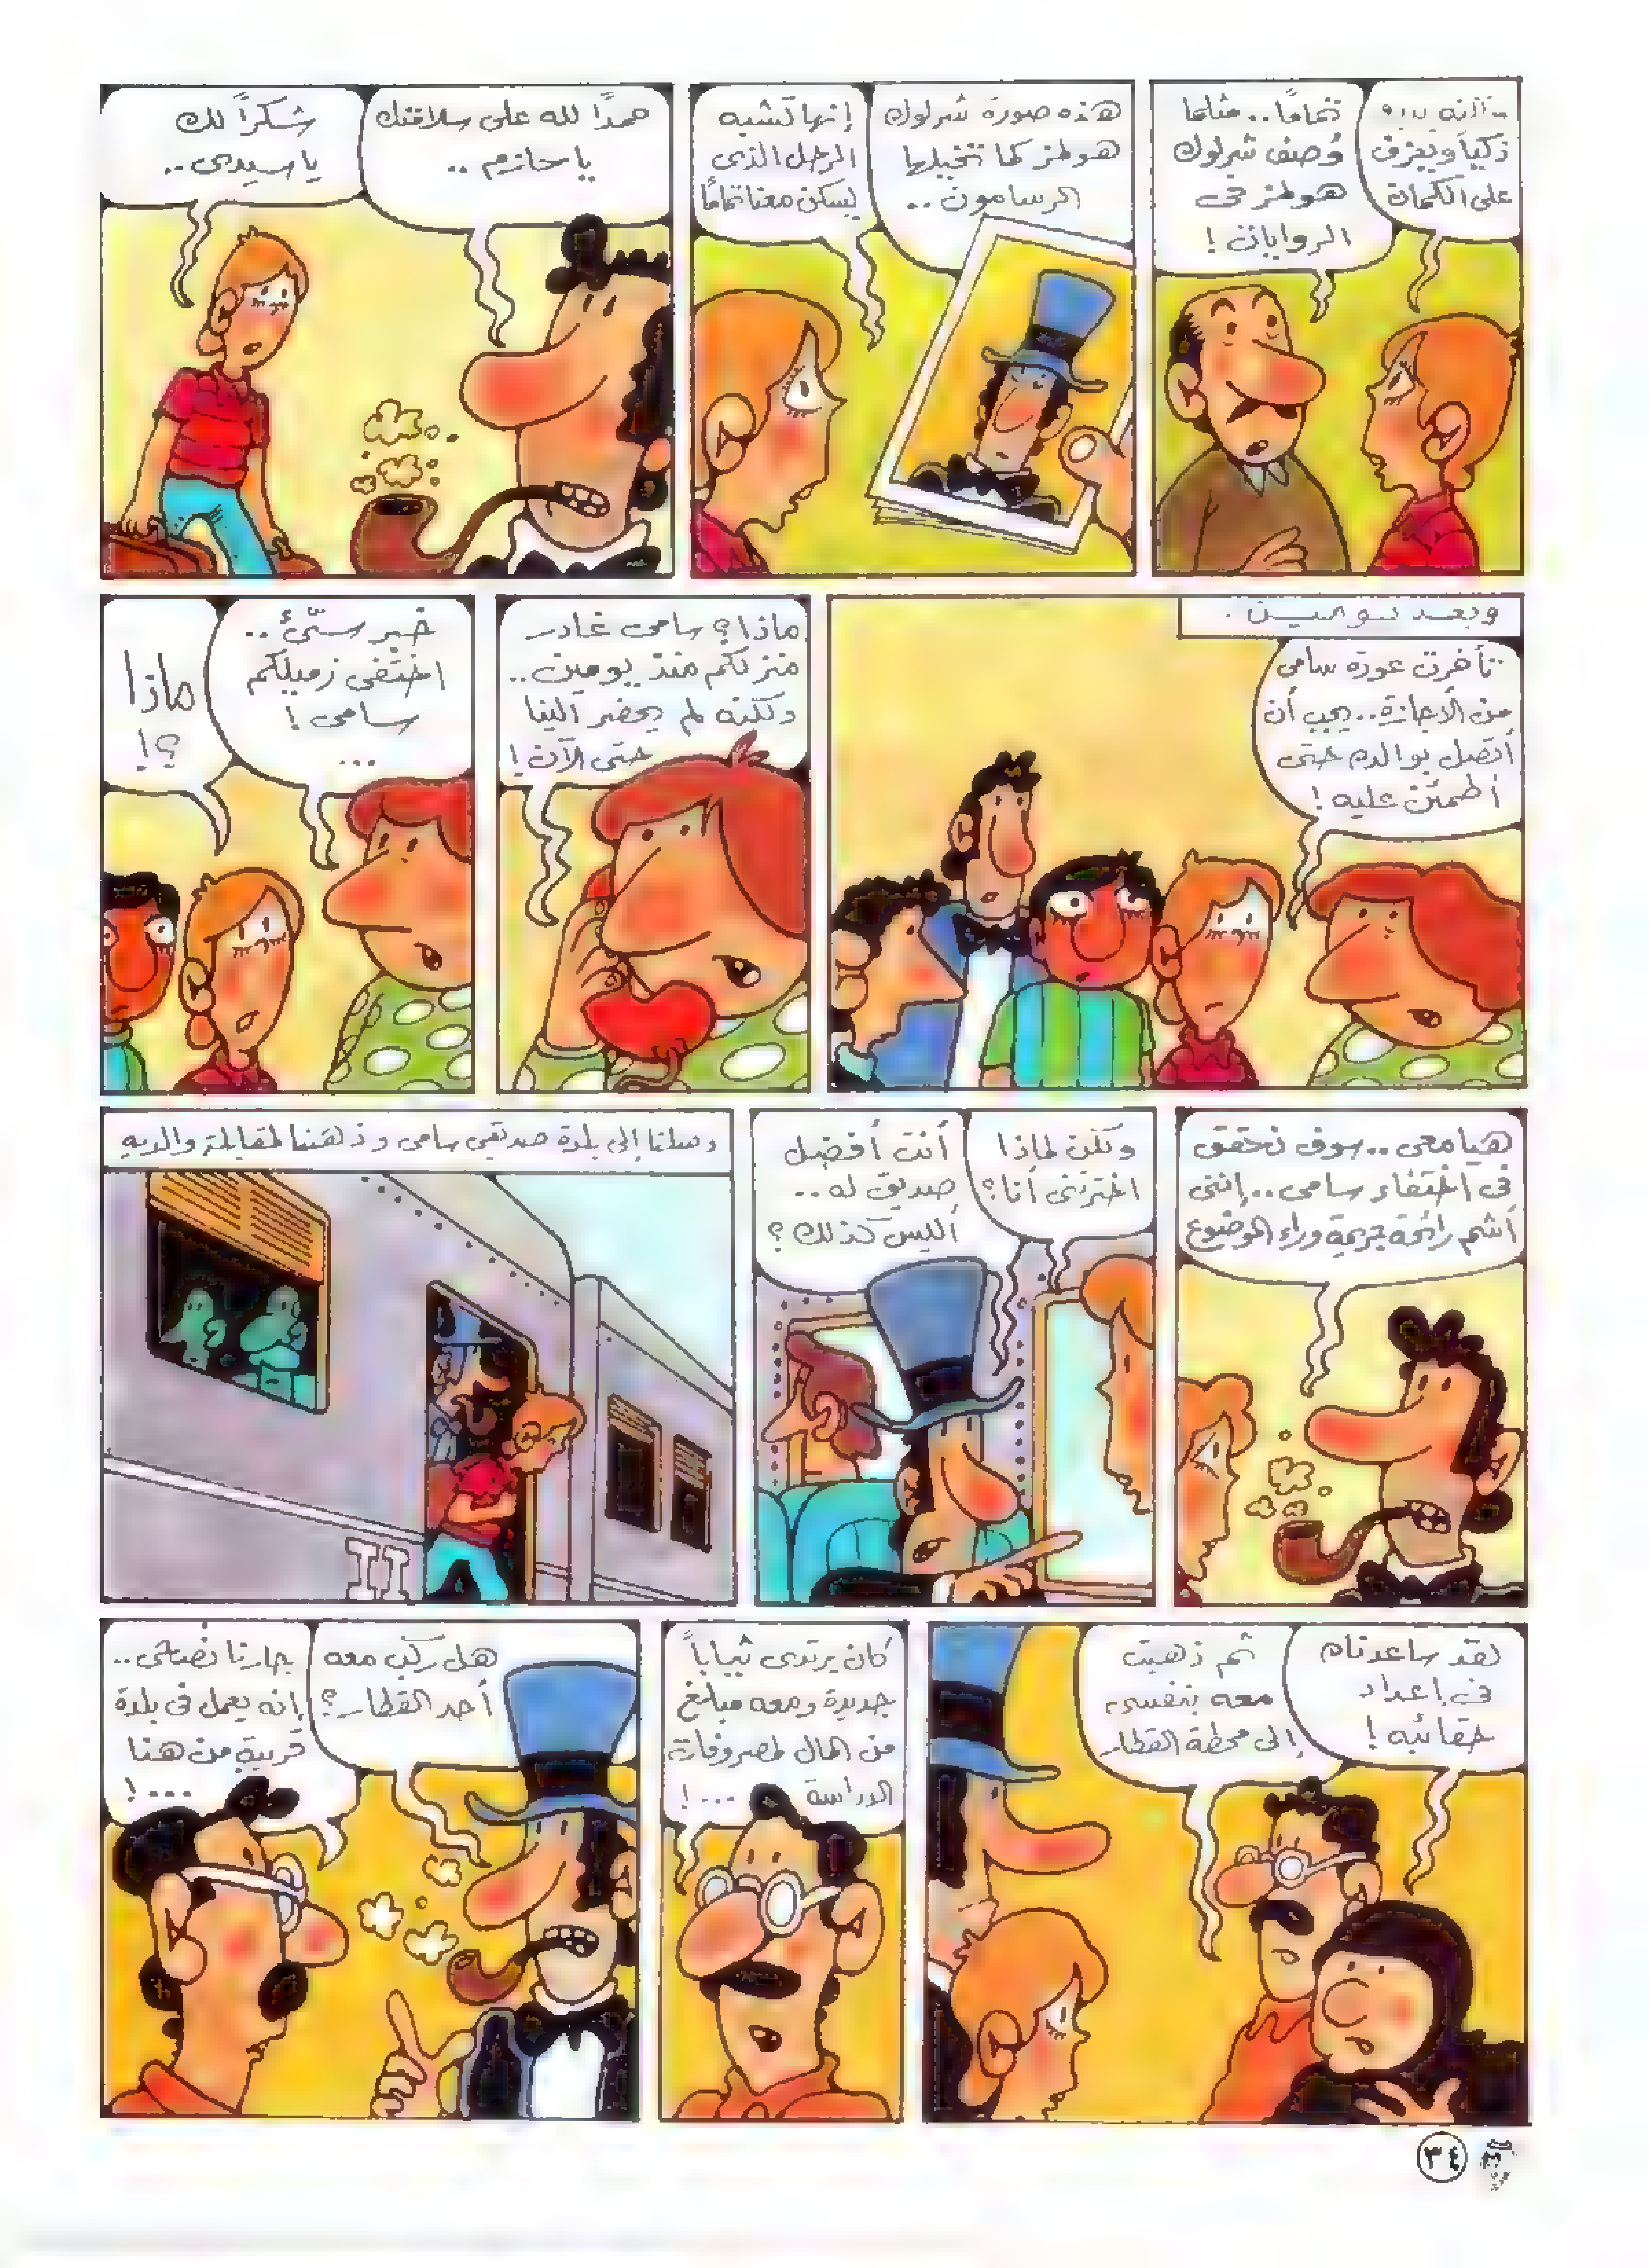 ذكياً ويعزف
على الكمان
تماماً.. مثلما
وُصف شرلوك
هولمز فى
الروايات !
هذه صورة شرلوك
هولمز كما تخيلها
الرسامون ..
إنها تشبه
الرجل الذى
يسكن معنا تماماً
حمداً لله على سلامتك
يا حازم ..
شكراً لك
يا سيدى ..
وبعد
تأخرت عودة سامى
من الأجازة.. يجب أن
أتصل بوالده حتى
أطمئن عليه !
ماذا؟ سامى غادر
منزلكم منذ يومين..
ولكنه لم يحضر إلينا
حتى الآن !
خبر سئّ ..
اختفى زميلكم
سامى !
...
ماذا
؟!
هيا معى .. سوف نحقق
فى اختفاء سامى .. إننى
أشم رائحة جريمة وراء الموضوع
ولكن لماذا
اخترتنى أنا؟
أنت أفضل
صديق له ..
أليس كذلك ؟
وصلنا إلى بلدة صديقى سامى وذهبنا لمقابلة والديه
لقد ساعدناه
فى إعداد
حقائبه !
ثم ذهبت
معه بنفسى
إلى محطة القطار
كان يرتدى ثياباً
جديدة ومعه مبلغ
من المال لمصروفات
الدراسة ...!
هل ركب معه
أحد القطار؟
جارنا فتحى ..
إنه يعمل فى بلدة
قريبة من هنا
...!
٣٤